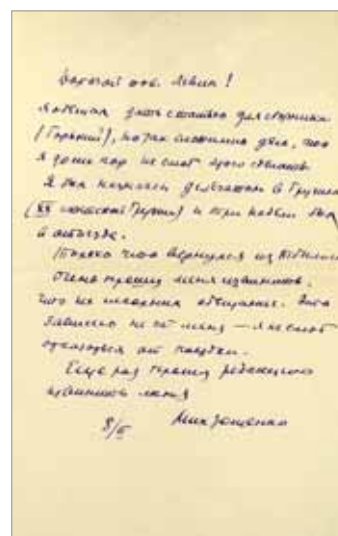 Дорогой тов. Левин!
Я обещал дать статью для сборника
(Горький), но так сложились дела, что
я до сих пор не смог этого сделать.
Я был назначен делегатом в Грузию
(XX Советской Грузии) и три недели был
в отъезде.
Только что вернулся из Тбилиси
Очень прошу меня извинить,
что не исполнил обещание. Это
зависело не от меня — я не смог
отказаться от поездки.
Еще раз прошу редакцию
извинить меня
Мих Зощенко
8/III